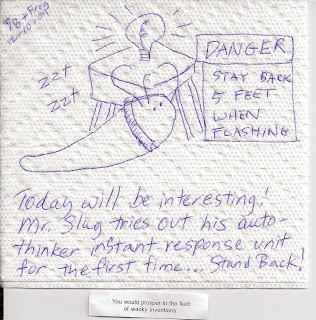 XB + Frog
12-10-09
DANGER
STAY BACK
5 FEET
WHEN
FLASHING
ZZT
ZZT
Today will be interesting!
Mr. Slug tries out his auto-
thinker instant response unit
for the first time... Stand Back!
You would prosper in the field
of wacky inventions